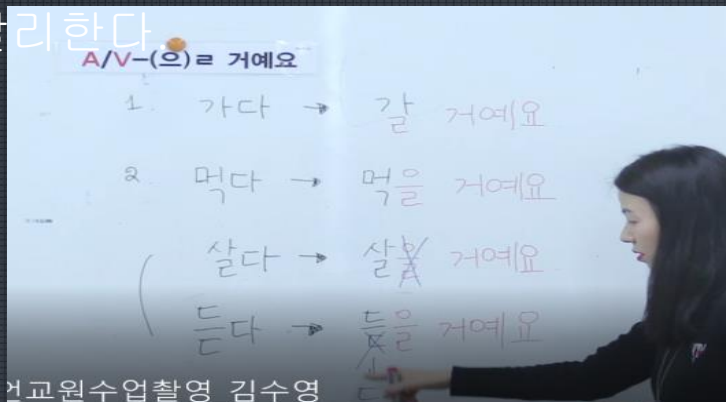 리한다
A/V-(으)ㄹ 거예요
1. 가다 → 갈 거예요
2 먹다 → 먹을 거예요
살다 → 살을 거예요
듣다 → 듣을 거예요
교원수업촬영 김수영